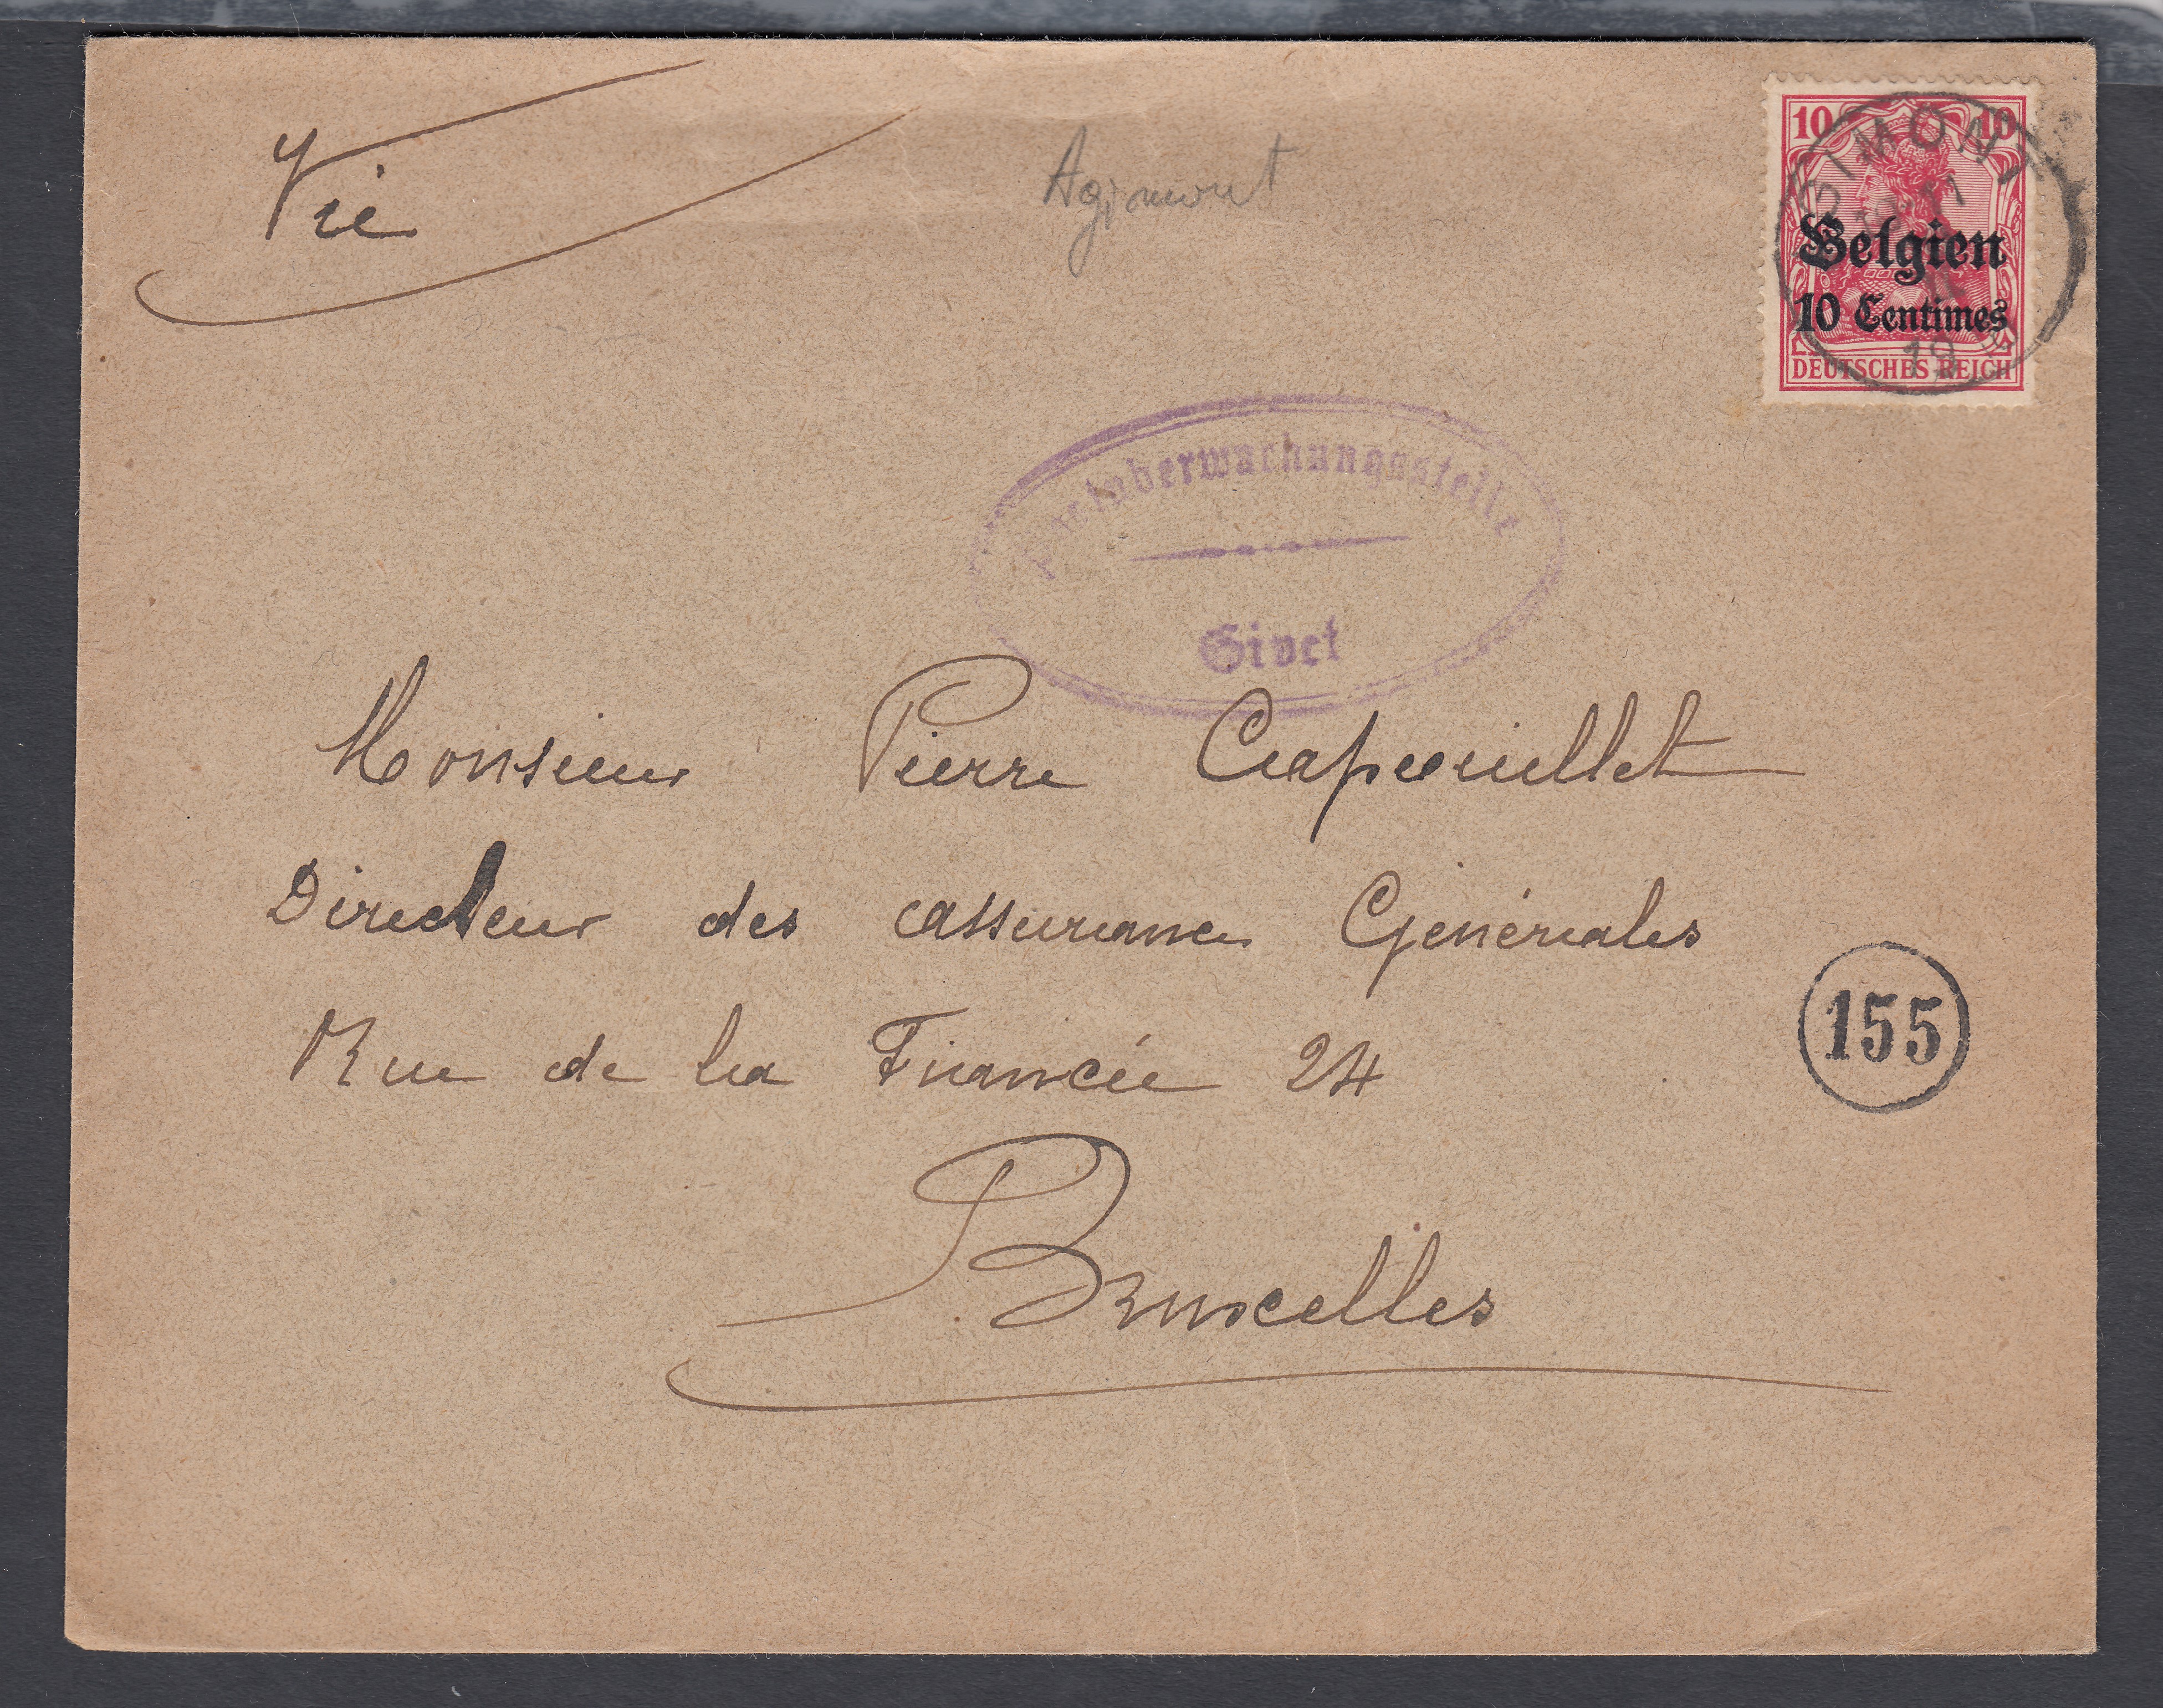 Vie
Agimont
10 10
GIMONT
Belgien
10 Centimes
DEUTSCHES REICH
Postüberwachungsstelle
Givet
Monsieur Pierre Capouillet
Directeur des assurances Générales
Rue de la Financée 24
155
Bruxelles